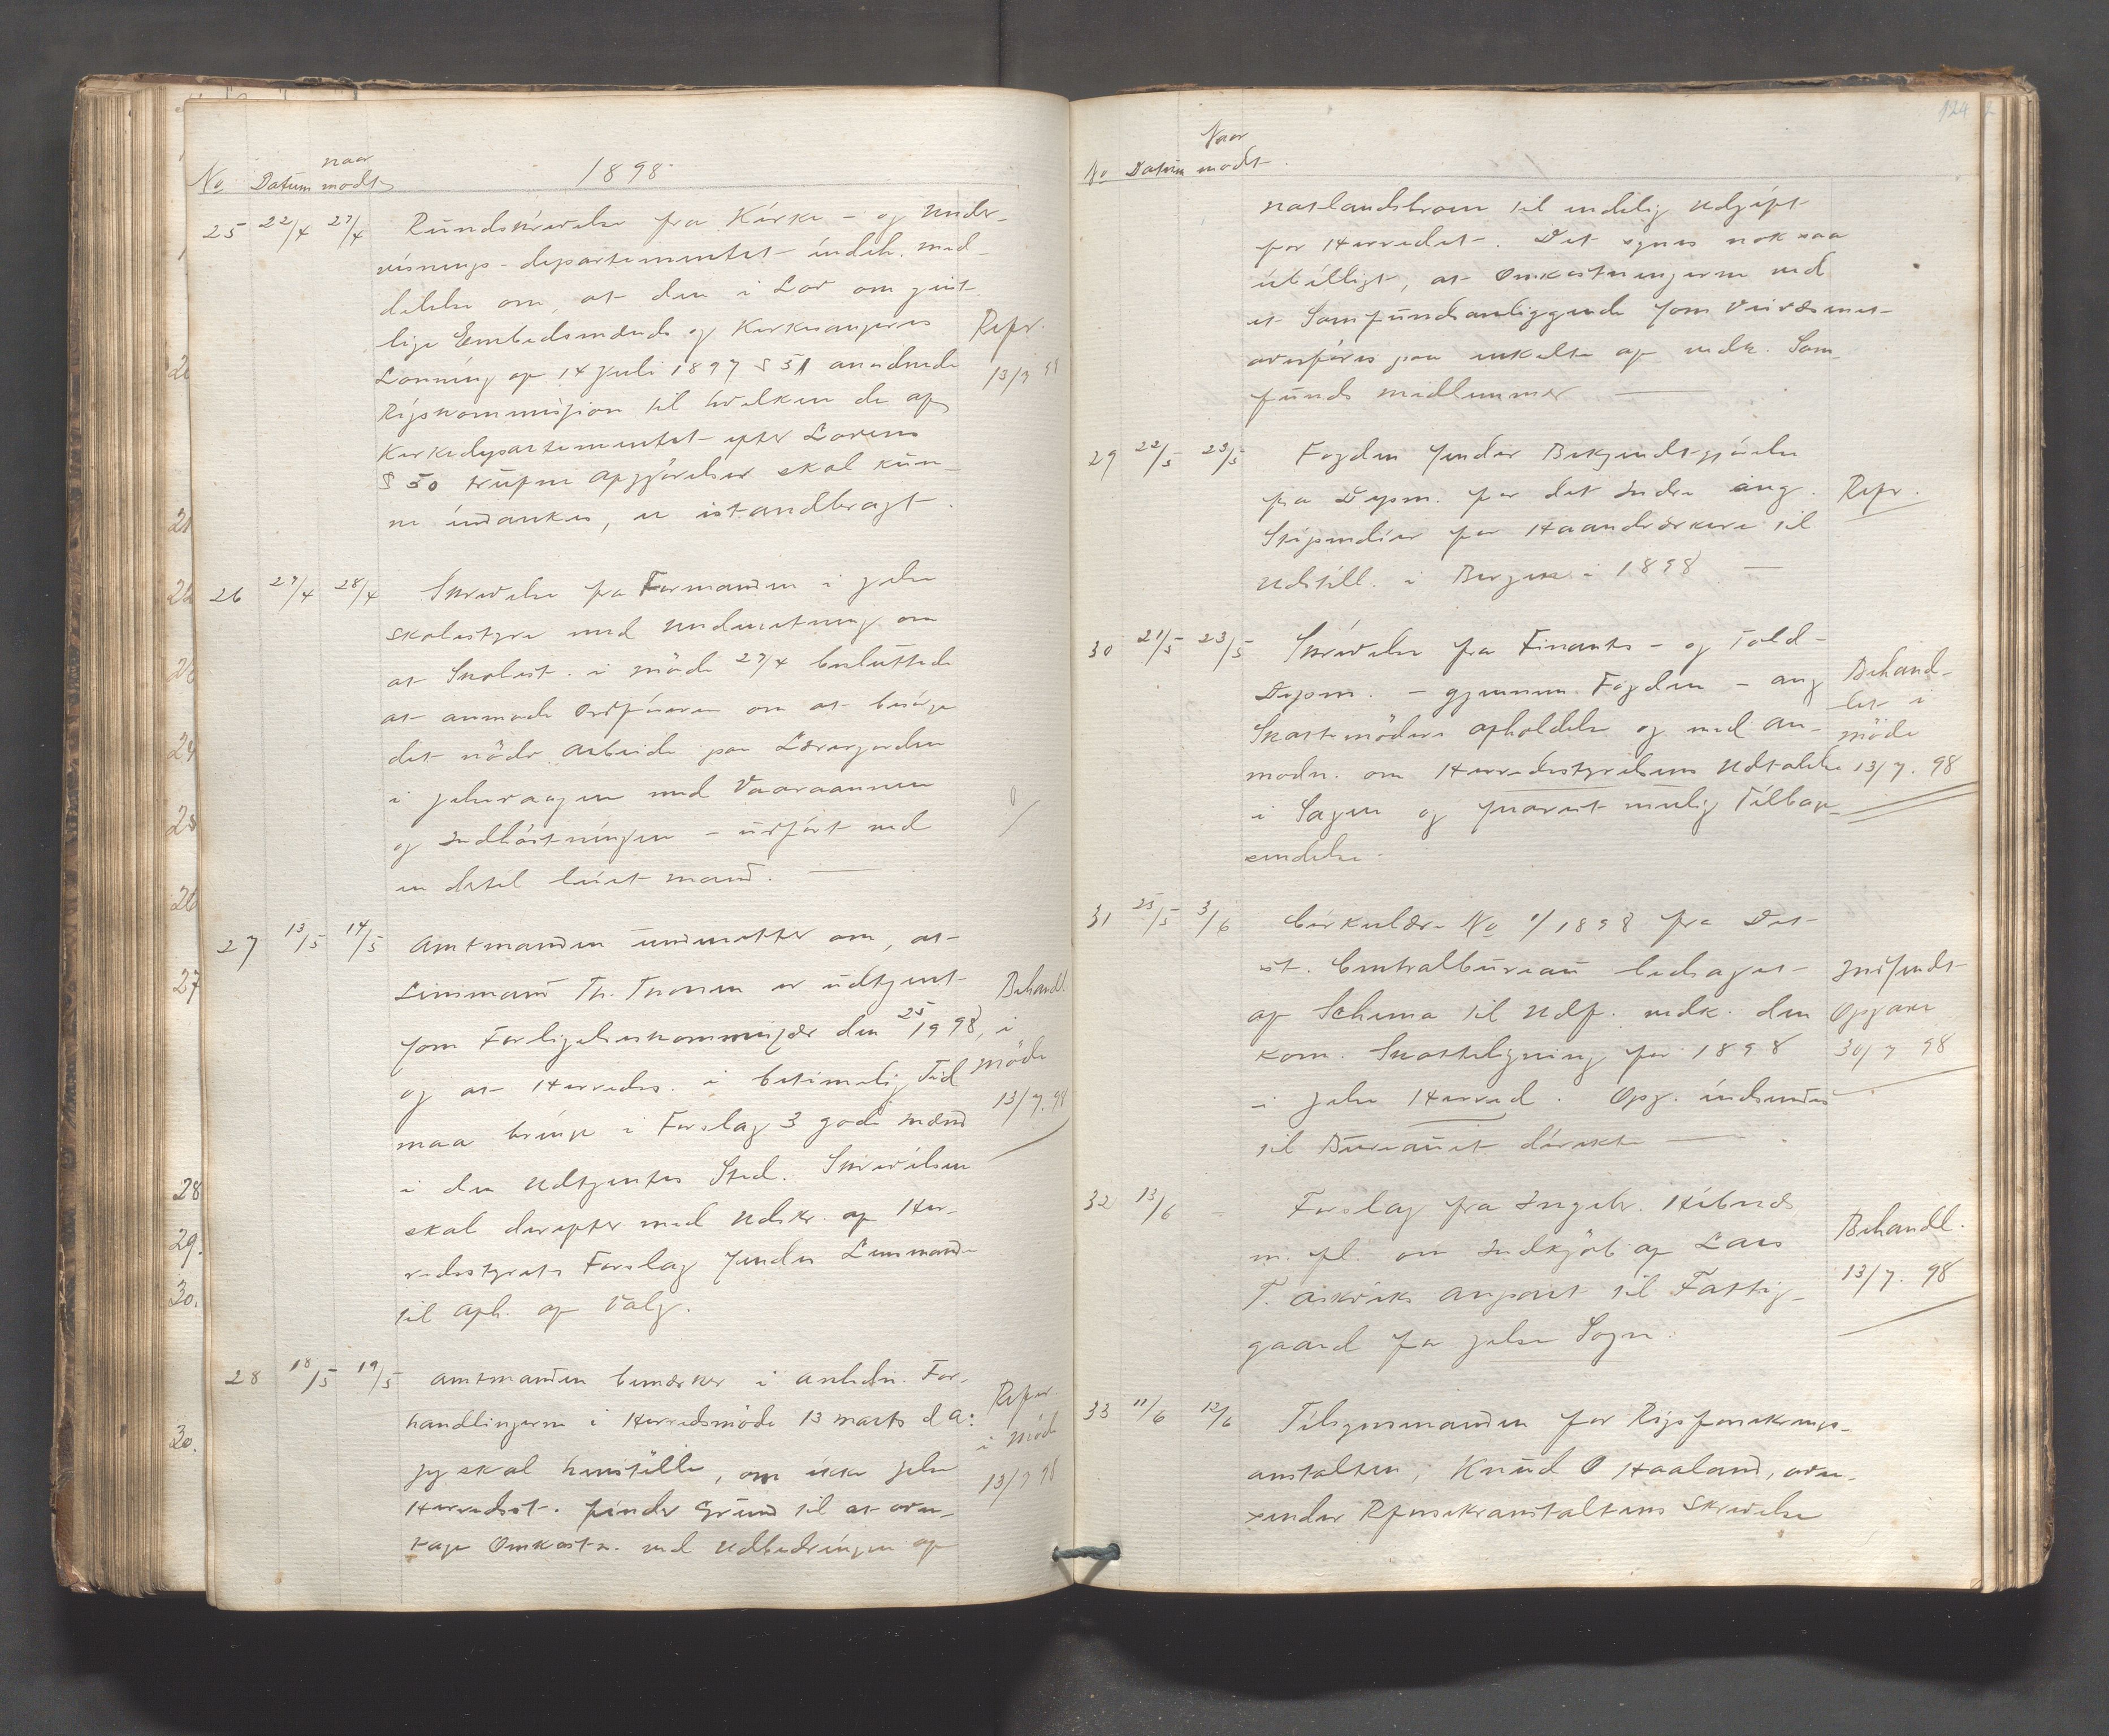 No Datum naar modt 1898
25 22/4 27/4 Rundskrivelse fra Kirke- og Under-
visnings-departementet indeh. med-
delelse om, at den i Lov om geist-
lige Embedsmænds og Kirkesangeres Refr.
Lønning af 14 Juli 1897 § 51 anordnede 13/7 98
Rigskommission til hvilken de af
Kirkedepartementet efter Lovens
§ 50 trufne Afgjørelser skal kun-
ne indankes, er istandbragt.
26 27/4 28/4 Skrivelse fra Formanden i Jelse
Skolestyre med Underretning om
at Skolest. i møde 27/4 besluttede
at anmode Ordføreren om at besørge
det nødv. Arbeide paa Lærerjorden
i Jelsevaagen med Vaaraannen
og Indhøstningen - udført ved
en dertil leiet mand.
27 13/5 14/5 Amtmanden underretter om, at
Lensmand Th. Thorsen er udtjent Behandl.
som Forligelseskommissær den 25/9 98, i
og at Herreds. i betimelig Tid møde
maa bringe i Forslag 3 gode mænd 13/7. 98
i den Udtjentes Sted. Skrivelsen
skal derefter med Udskr. af Her-
redsstyrets Forslag sendes Lensmanden
til Afh. af Valg.
28 18/5 19/5 Amtmanden bemærker i anledn. For-
handlingerne i Herredsmøde 13 marts d A: Refer.
Jeg skal henstille, om ikke Jelse i møde
Herredsst. finder Grund til at over- 13/7 98
tage Omkostn. ved Udbedringen af
124
No Datum Naar modt
for Herredet. Det synes nok saa
ubilligt, at Omkostningerne ved
et Samfundsanliggende som Veivæsenet
overføres paa enkelte af vedk. Sam-
funds medlemmer
29 22/5 23/5 Fogden sender Bekjendtgjørelse
fra Depm. for det Indre ang. Refr.
Stipendier for Haandværkere til
Udstill. i Bergen i 1898
30 21/5 23/5 Skrivelse fra Finants- og Told-
Depm. - gjennem Fogden - ang Behand-
Skattemøders afholdelse og med an- let i møde
modn. om Herredsstyrelsens Udtalelse 13/7. 98
i Sagen og snarest mulig Tilbage-
sendelse.
31 25/5 3/6 Cirkulære No 1/1898 fra Det
st. Centralbureau ledsaget Indsendt
af Schema til Udf. vedk. den Opgave
kom. Skatteligning for 1898 30/7 98
i Jelse Herred. Opg. indsendes
til Bureauet direkte
32 13/6 - Forslag fra Ingebr. Hebnes
m. fl. om Indkjøb af Lars Behandl.
T. anpart til Fattig- 13/7. 98
gaard for Jelse Sogn.
33 11/6 12/6 Tilsynsmanden for Rigsforsikrings-
anstalten, Knud O Haaland, over-
sender Rforsikranstaltens Skrivelse